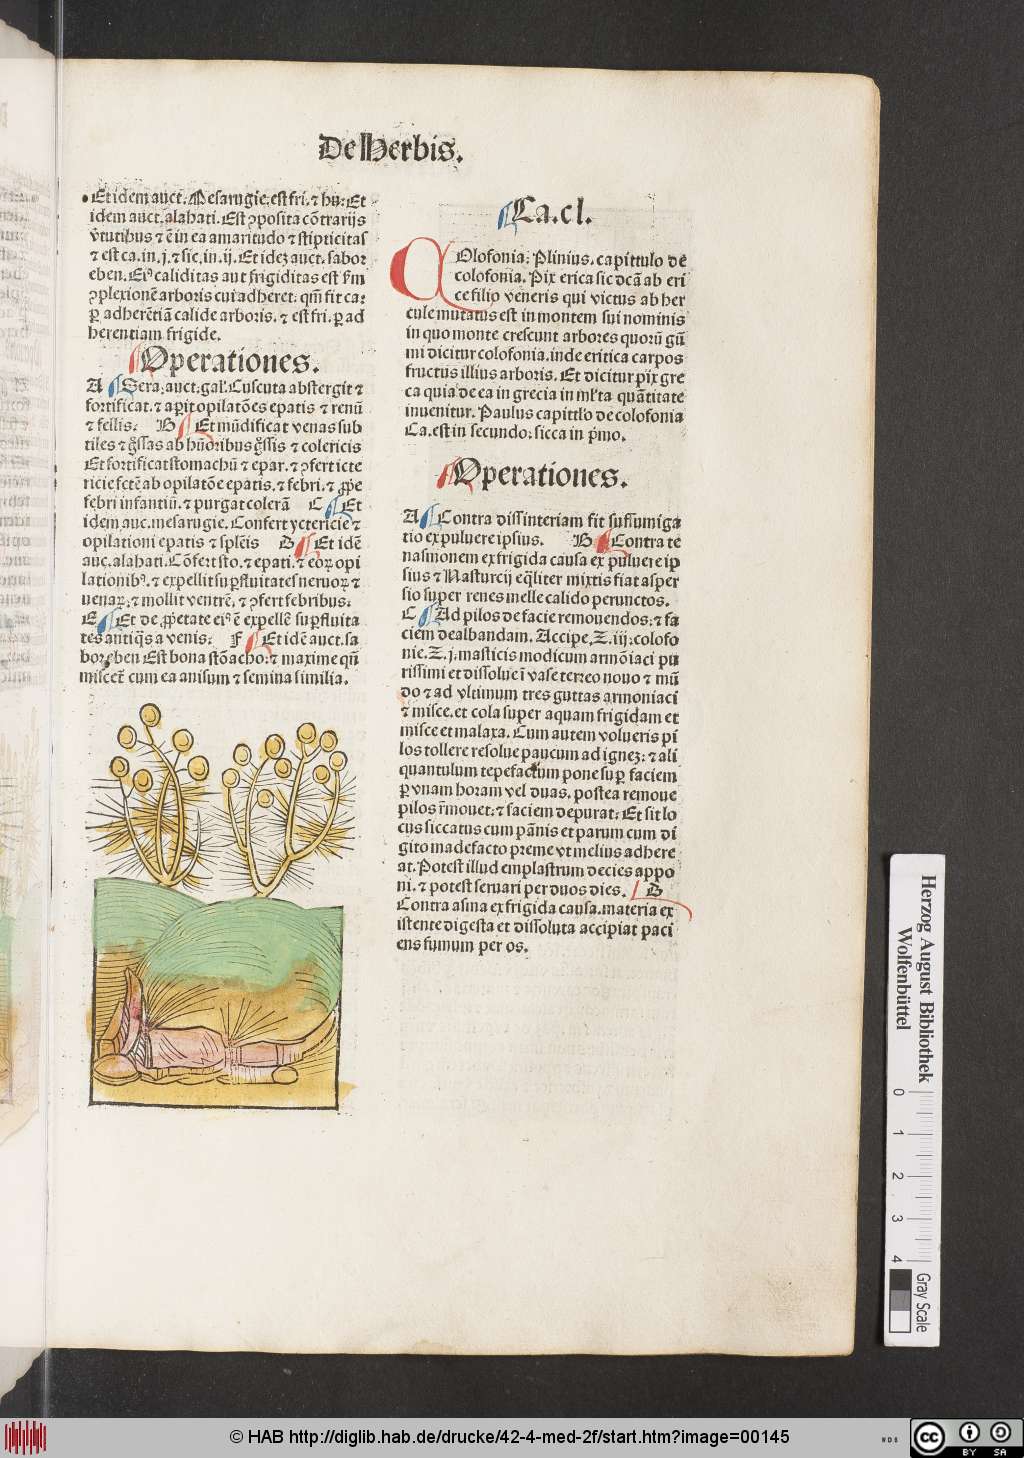 De Herbis.
Et idem auct. Mesarugie. est fri. ⁊ hu: Et
idem auct. alahati. Est ꝓposita cōtrarijs
v̄tutibus ⁊ ē in ea amaritudo ⁊ stipticitas
⁊ est ca. in. j. ⁊ sic. in. ij. Et idez auct. sabor
eben. Eiꝰ caliditas aut frigiditas est ẜm
ꝯplexionē arboris cui adheret: qm̄ fit ca:
ꝑ adherētiā calide arboris. ⁊ est fri. ꝑ ad
herentiam frigide.
Operationes.
A Sera: auct. gal'. Cuscuta abstergit ⁊
fortificat. ⁊ aꝑit opilatōes epatis ⁊ renū
⁊ fellis: B Et mūdificat venas sub
tiles ⁊ g̊ssas ab hūoribus g̊ssis ⁊ colericis
Et fortificat stomachū ⁊ epar. ⁊ ꝯfert icte
ricie fctē ab opilatōe epatis. ⁊ febri. ⁊ ꝓpe
febri infantiū. ⁊ purgat colerā C Et
idem auc. mesarugie. Confert yctericie ⁊
opilationi epatis ⁊ splēis D Et idē
auc. alahati. Cōfert sto. ⁊ epati. ⁊ eoꝝ opi
lationibꝰ. ⁊ expellit suꝑfluitates neruoꝝ ⁊
venaꝝ: ⁊ mollit ventrē. ⁊ ꝯfert febribus:
E Et de ꝓpetate eiꝰ ē expellē suꝑfluita
tes antiq̄s a venis: F Et idē auct. sa
bor. eben Est bona stōacho: ⁊ maxime qn̄
misceēt cum ea anisum ⁊ semina similia.
Ca. cl.
COlofonia: Plinius. capittulo de
colofonia. Pix erica sic dc̄ā ab eri
ce filio veneris qui victus ab her
cule mutatus est in montem sui nominis
in quo monte crescunt arbores quorū gū
mi dicitur colofonia. inde eritica carpos
fructus illius arboris. Et dicitur pix gre
ca quia de ea in grecia in ml'ta quātitate
inuenitur. Paulus capittl'o de colofonia
Ca. est in secundo: sicca in p̄mo.
Operationes.
A Contra dissinteriam fit suffumiga
tio ex puluere ipsius. B Contra te
nasmonem ex frigida causa ex puluere ip
sius ⁊ Nasturcij eq̄liter mixtis fiat asper
sio super renes melle calido perunctos.
C Ad pilos de facie remouendos: ⁊ fa
ciem dealbandam. Accipe. Ʒ. iij: colofo
nie. Ʒ. j. masticis modicum armōiaci pu
rissimi et dissolue ī vase terreo nouo ⁊ mū
do ⁊ ad vltimum tres guttas armoniaci
⁊ misce. et cola super aquam frigidam et
misce et malaxa. Cum autem volueris pi
los tollere resolue paucum ad ignez: ⁊ ali
quantulum tepefactum pone suꝑ faciem
ꝑ vnam horam vel duas. postea remoue
pilos r̄mouet: ⁊ faciem depurat: Et sit lo
cus siccatus cum pānis et parum cum di
gito madefacto preme vt melius adhere
at. Potest illud emplastrum decies appo
ni. ⁊ potest seruari per duos dies. D
Contra asma ex frigida causa. materia ex
istente digesta et dissoluta accipiat paci
ens fumum per os.
Herzog August Bibliothek
Wolfenbüttel
0 1 2 3 4
Gray Scale
© HAB http://diglib.hab.de/drucke/42-4-med-2f/start.htm?image=00145
WDB
cc BY SA